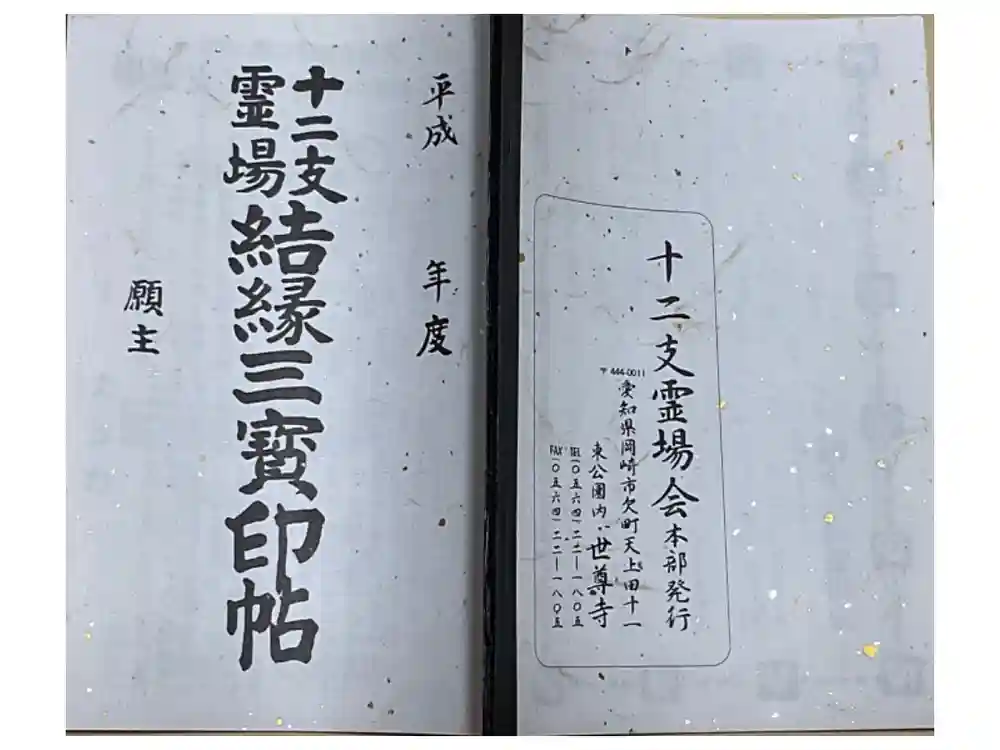 十二支霊場会本部発行
〒444-0011
愛知県岡崎市欠町天上田十一
東公園内・世尊寺
TEL(〇五六四)二二ー一八〇五
FAX(〇五六四)二二ー一八〇五
平成 年度
十二支
霊場
結縁三寶印帖
願主